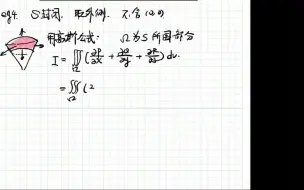 eg4. S封闭. 取外侧. 不含
用高斯公式. Ω为S所围部分
I = ∭_Ω (∂P/∂x + ∂Q/∂y + ∂R/∂z) dv.
= ∭_Ω (2